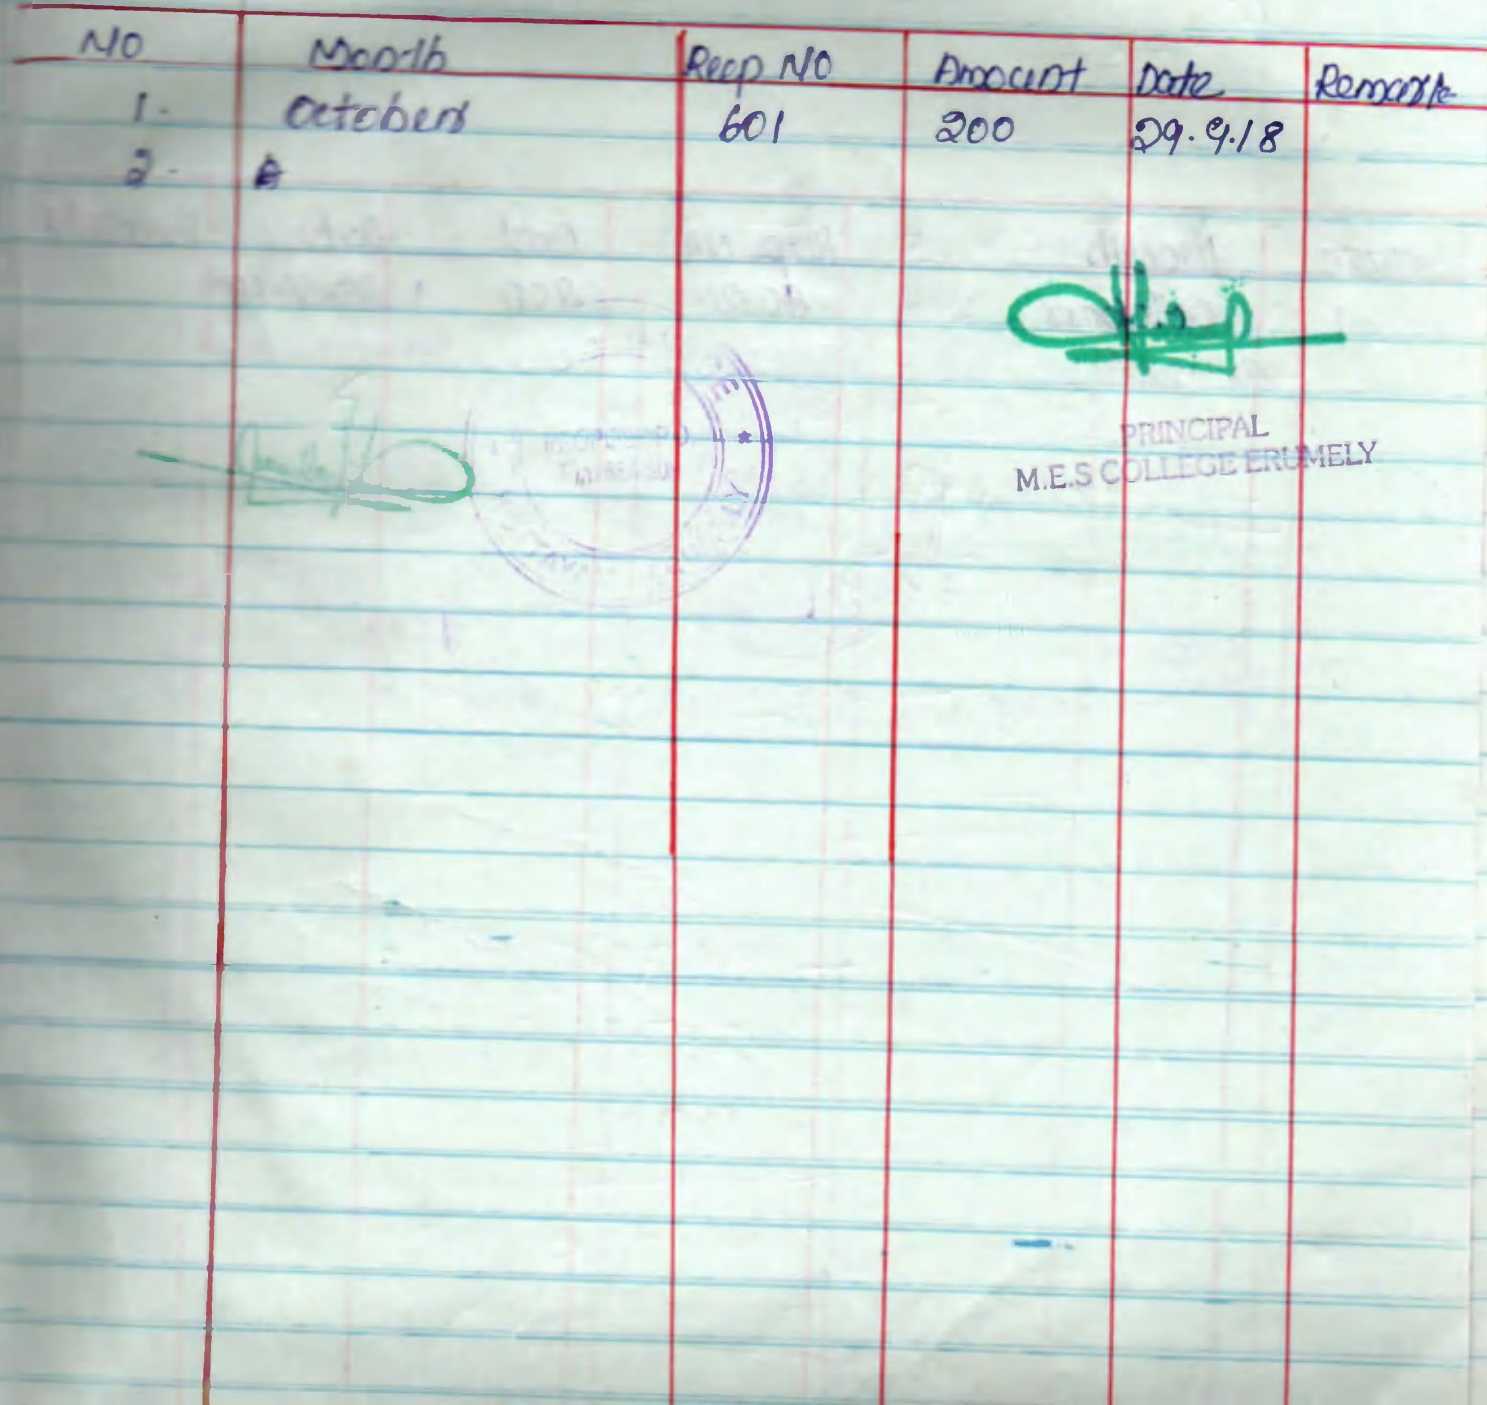 NO Month Recp NO Amount Date Remark
1. October 601 200 29.9.18
2.
PRINCIPAL
M.E.S COLLEGE ERUMELY